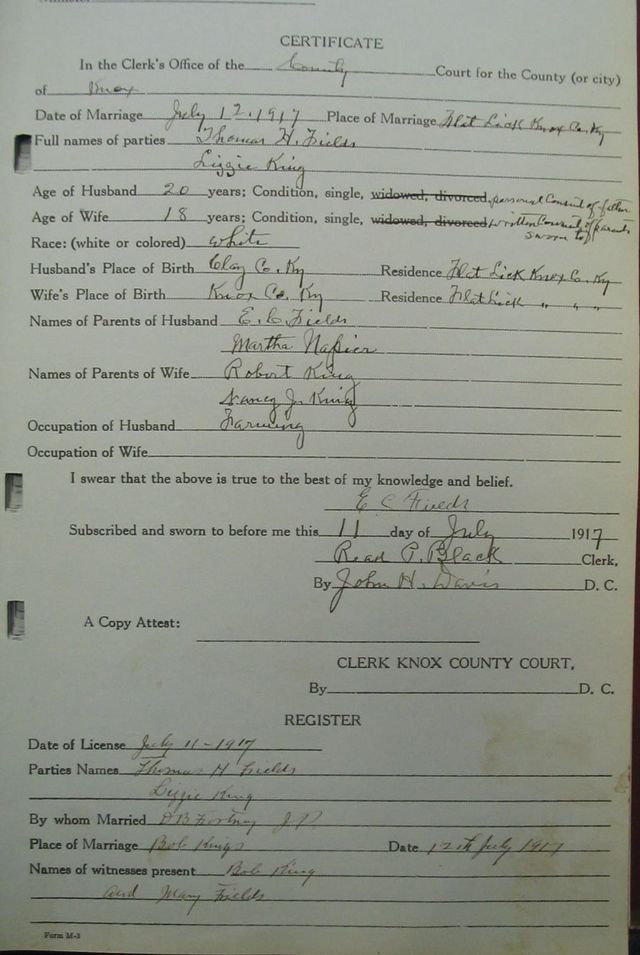 CERTIFICATE
In the Clerk's Office of the County Court for the County (or city)
of Knox
Date of Marriage July 12, 1917 Place of Marriage Flat Lick Knox Co. Ky
Full names of parties Thomas H. Fields
Lizzie King
Age of Husband 20 years; Condition, single, widowed, divorced, personal Consent of father
Age of Wife 18 years; Condition, single, widowed, divorced, written Consent of parents
sworn to
Race: (white or colored) white
Husband's Place of Birth Clay Co. Ky Residence Flat Lick Knox Co. Ky
Wife's Place of Birth Knox Co. Ky Residence Flat Lick " " "
Names of Parents of Husband E. C. Fields
Martha Napier
Names of Parents of Wife Robert King
Nancy J. King
Occupation of Husband Farming
Occupation of Wife
I swear that the above is true to the best of my knowledge and belief.
E C Fields
Subscribed and sworn to before me this 11 day of July 1917
Read P. Black Clerk,
By John H. Davis D. C.
A Copy Attest:
CLERK KNOX COUNTY COURT,
By D. C.
REGISTER
Date of License July 11-1917
Parties Names Thomas H Fields
Lizzie King
By whom Married J P
Place of Marriage Bob Kings Date 12th July 1917
Names of witnesses present Bob King
and Mary Fields
Form M-3